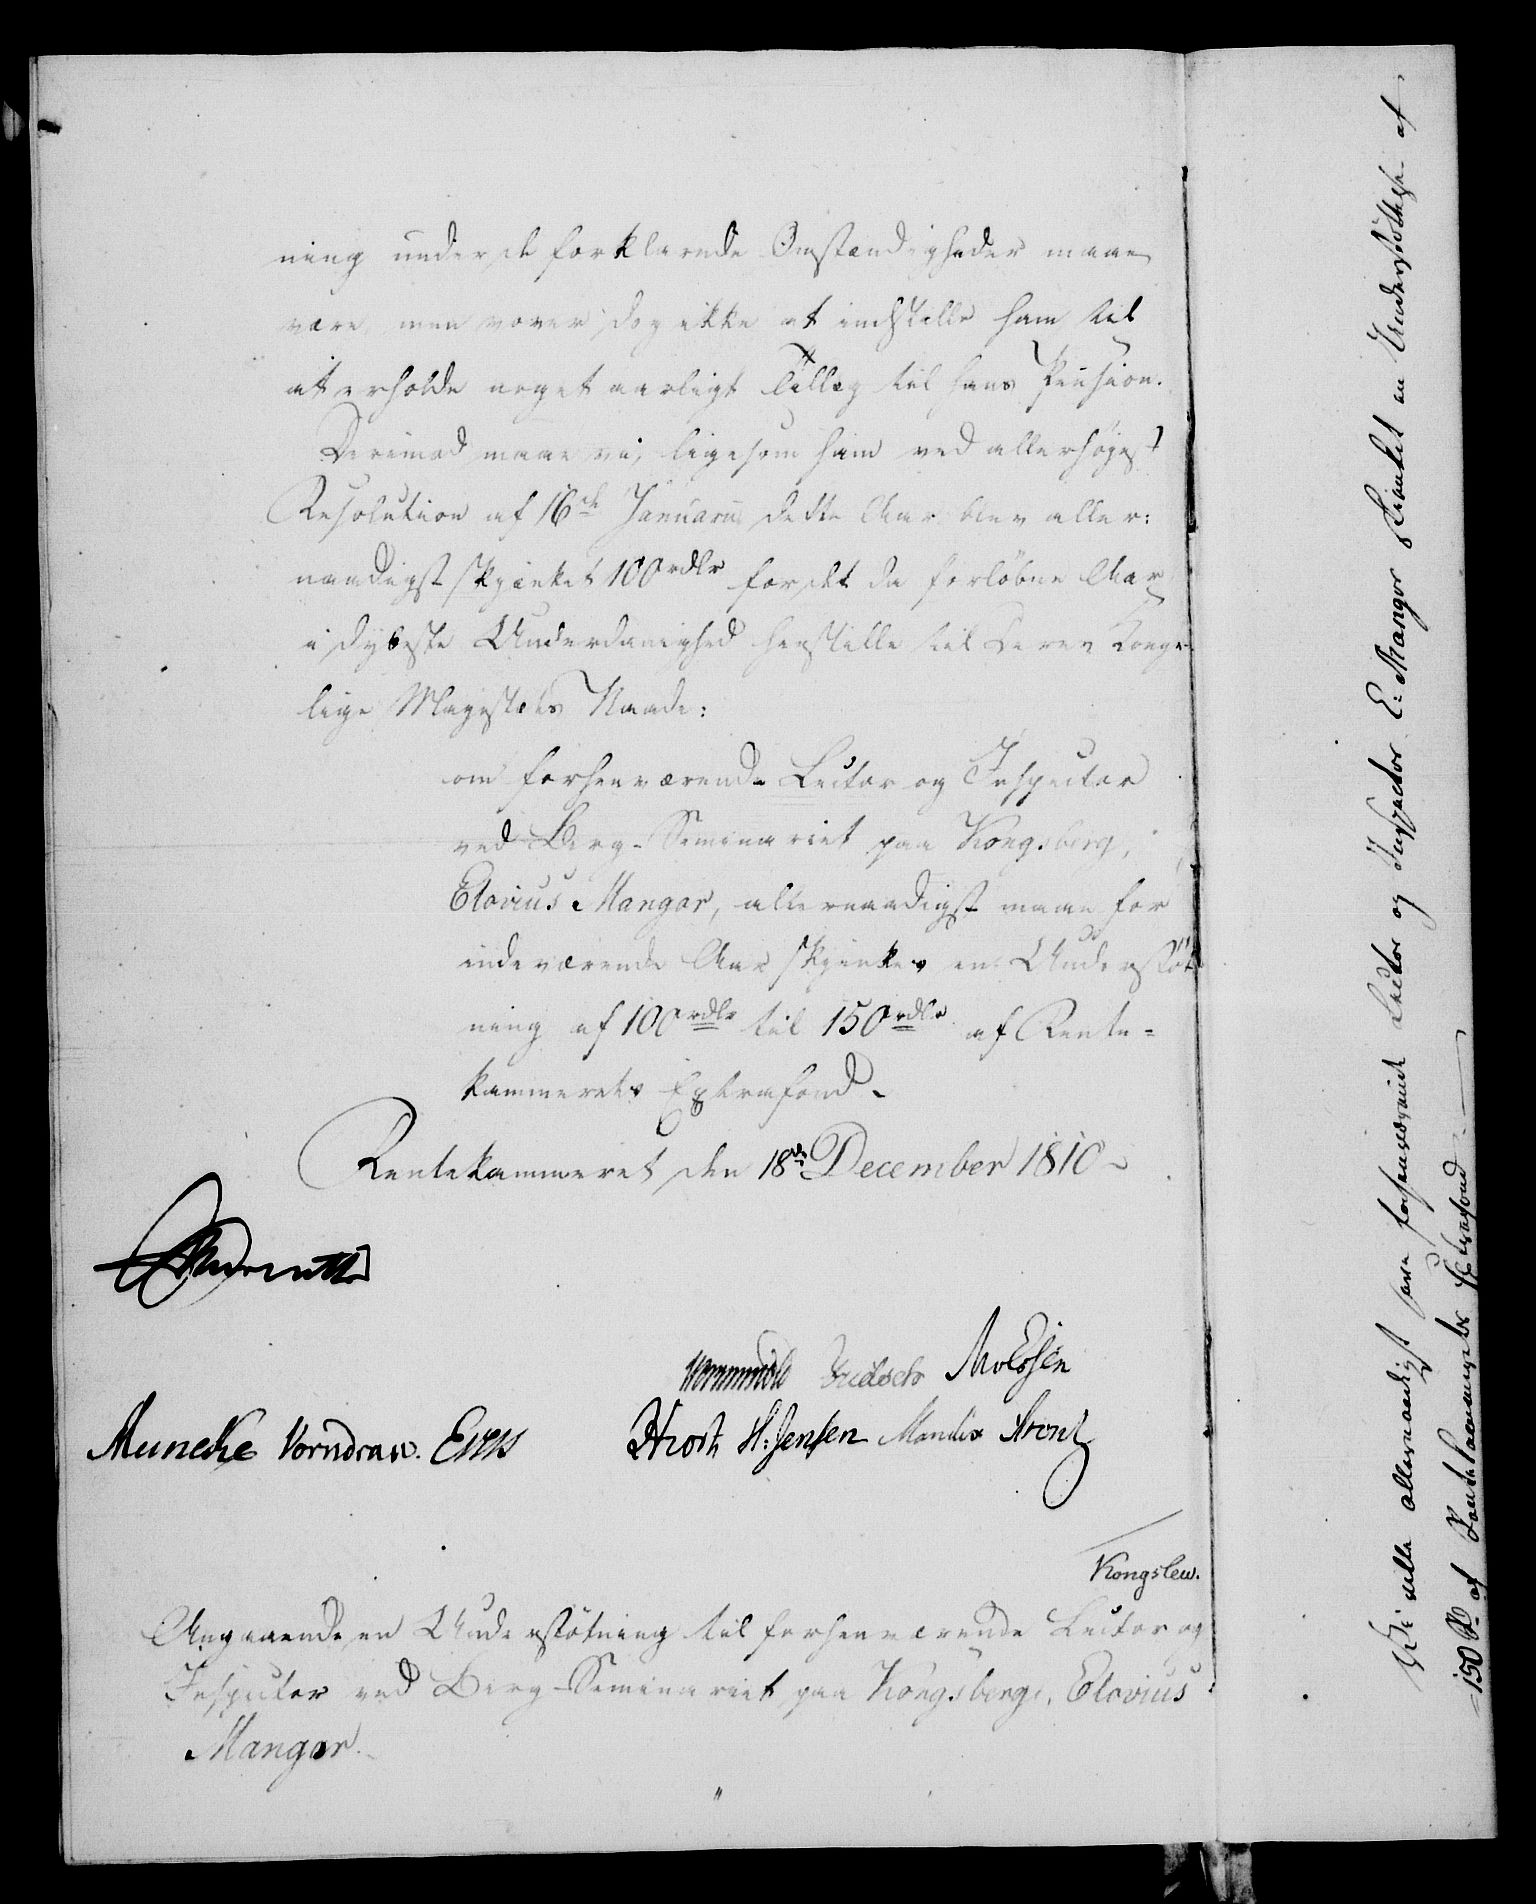 ning under de forklarede Omstændigheder maae
være, men vover dog ikke at indstille ham til
at erholde noget aarligt Tillæg til hans Pension.
Derimod maae vi, ligesom ham ved allerhøyest
Resolution af 16de Januarii dette Aar blev aller:
naadigst skjænket 100 rdlr for det da forløbne Aar
i dybeste Underdanighed henstille til Deres Konge-
lige Majestæts Naade:
om forhenværende Lector og Inspector
ved Berg-Seminariet paa Kongsberg,
Elovius Mangor, allernaadigst maae for
indeværende Aar skjænkes en Understøt
ning af 100 rdlr til 150 rdlr af Rente-
kammerets Extrafond.
Rentekammeret den 18de December 1810
Wormskiold Molssen
Muncke Vorndran. Hrost H: Jensen Mandix
Kongslew.
Angaaende en Understøtning til forhenværende Lector og
Inspector ved Berg-Seminariet paa Kongsberg, Elovius
Mangor.
Vi ville allernaadigst have forhenværende Lector og Inspector E: Mangor skienket en Understøttelse af
150 Rd af Rentekammerets Extrafond.